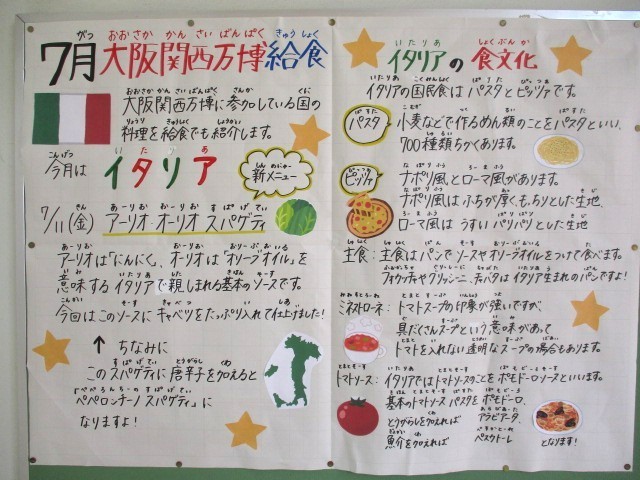 7月 大阪関西万博給食
大阪関西万博に参加している国の
料理を給食でも紹介します。
今月は イタリア
新メニュー
7/11(金) アーリオ・オーリオ スパゲティ
アーリオは「にんにく、オーリオは「オリーブオイル」を
意味するイタリアで親しまれる基本のソースです。
今回はこのソースにキャベツをたっぷり入れて仕上げました!
↑ ちなみに
このスパゲティに唐辛子を加えると
「ペペロンチーノ スパゲティ」に
なりますよ!
イタリアの食文化
イタリアの国民食はパスタとピッツァです。
パスタ 小麦などで作るめん類のことをパスタといい、
700種類ちかくあります。
ピッツァ ナポリ風とローマ風があります。
ナポリ風はふちが厚く、もっちりとした生地
ローマ風は うすい パリパリとした生地
主食:主食はパンでソースやオリーブオイルをつけて食べます。
フォカッチャやクリッシーニ、チャバタはイタリア生まれのパンですよ!
ミネストローネ:トマトスープの印象が強いですが、
具だくさんスープという意味があって
トマトを入れない透明なスープの場合もあります。
トマトソース:イタリアではトマトソースのことをポモドーロソースといいます。
基本のトマトソースパスタをポモドーロ、
とうがらしを加えれば アラビアータ、
魚介を加えれば ペスカトーレ となります!